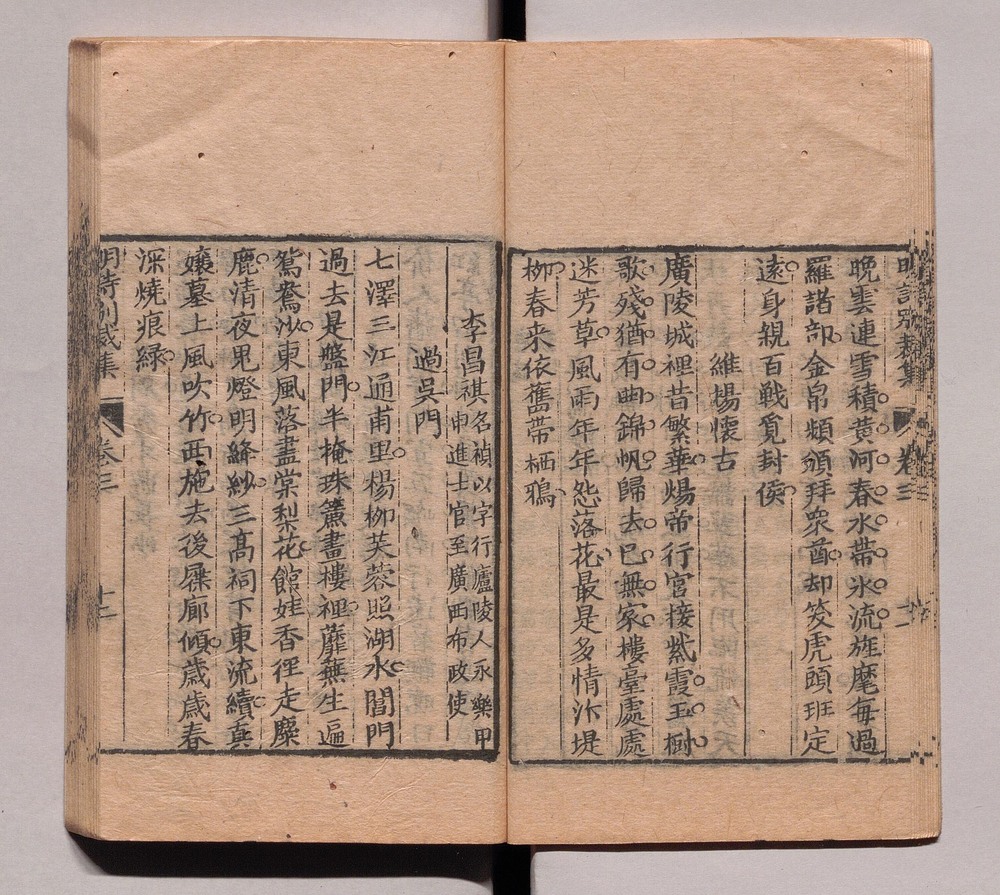 明詩別裁集 卷三 十一
晚雲連雪積黃河春水帶氷流旌麾每過
羅諸部金帛頻頒拜衆酋却笑虎頭班定
逺身親百戦覓封侯
維揚懷古
廣陵城裡昔繁華煬帝行宮接紫霞玉樹
歌殘猶有曲錦帆歸去已無家樓臺處處
迷芳草風雨年年怨落花最是多情汴堤
栁春来依舊帶栖鴉
李昌祺名禎以字行廬陵人永樂甲
申進士官至廣西布政使
過吳門
七澤三江通甫里楊栁芙蓉照湖水閶門
過去是盤門半掩珠簾畫樓裡蘼蕪生遍
鴛鴦沙東風落盡棠梨花館娃香徑走麋
鹿清夜鬼燈明絳紗三高祠下東流續真
孃墓上風吹竹西施去後屧廊傾歳歳春
深燒痕緑
明詩別裁集 卷三 十二